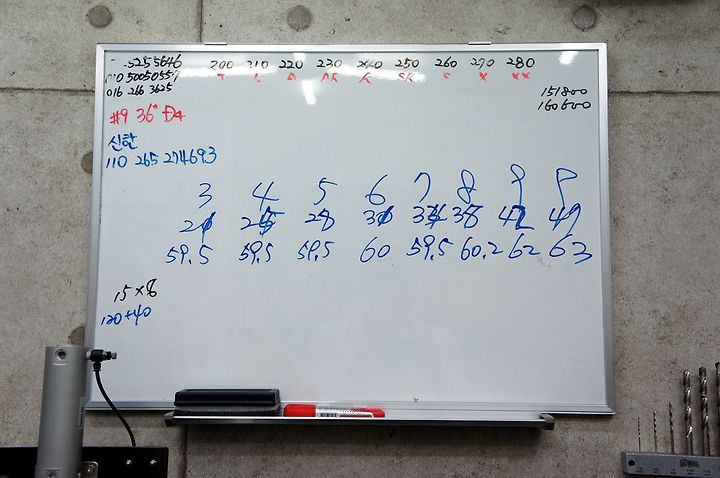 5255646 200 210 220 230 240 250 260 270 280
010 50050559 T L R K SR S X XX
016 266 3625
151800
160600
#9 36"
신한
110 265 274693
3 4 5 6 7 8 9 P
28 38 42 49
59.5 59.5 59.5 60 59.5 60.2 62 63
15 × 8
120+40